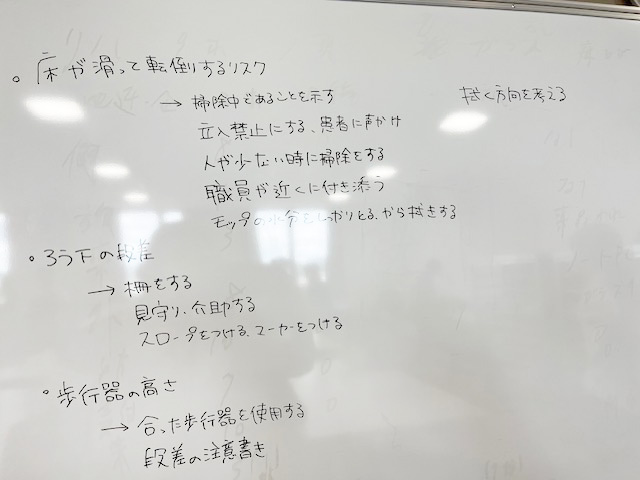 。床が滑って転倒するリスク
→ 掃除中であることを示す
拭く方向を考える
立入禁止にする、患者に声かけ
人が少ない時に掃除をする
職員が近くに付き添う
モップの水分をしっかりとる、から拭きする
。ろう下の段差
→ 柵をする
見守り、介助する
スロープをつける、マーカーをつける
。歩行器の高さ
→ 合った歩行器を使用する
段差の注意書き